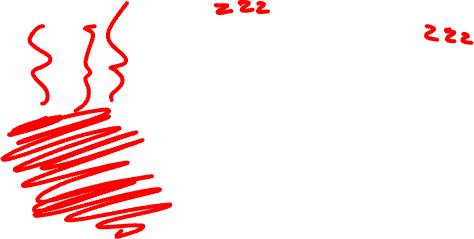 zzz
zzz